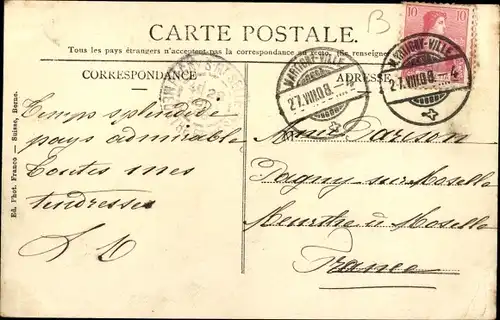 B
CARTE POSTALE.
Tous les pays étrangers n'acceptent pas la correspondance au recto. (Se renseigner
CORRESPONDANCE
ADRESSE
10 10
MARTIGNY-VILLE
27.VIII.08.
MARTIGNY-VILLE
27.VIII.08.
Temps splendide
pays admirable
Toutes mes
tendresses
Pagny sur Moselle
Meurthe & Moselle
France
Ed. Phot. Franco-Suisse, Berne.